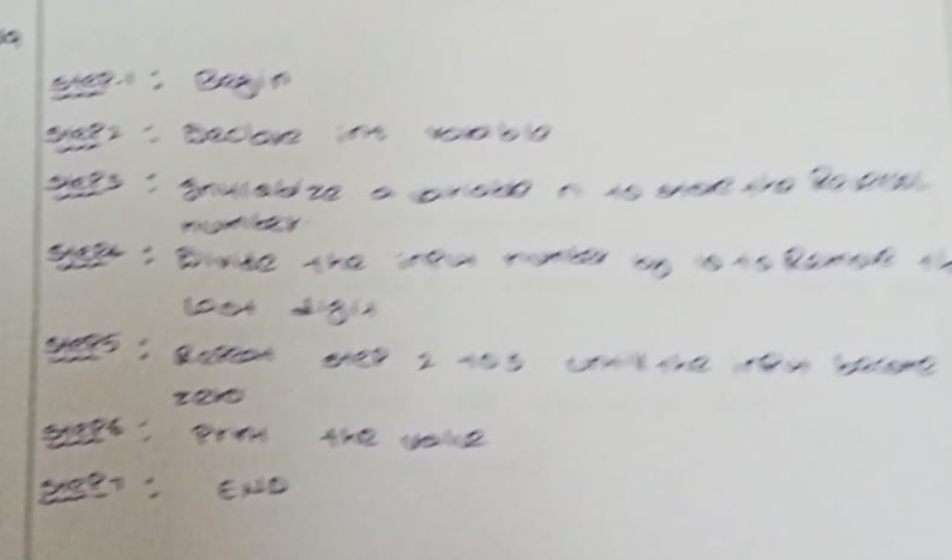 Step-1 : Begin
Step2 : Declare int variable
Step3 : Initialize a variable n to store the
number
Step4 : Divide the input number by 10 to Remove
last digit
Step5 : Repeat step 2 to 5 until the become
zero
Step6 : Print the value
Step-7 : END